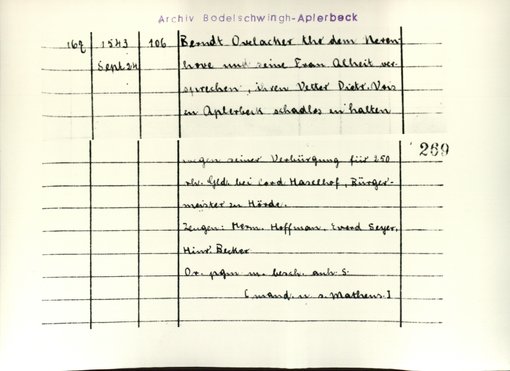 Archiv Bodelschwingh-Aplerbeck
162 1543 106 Berndt Ovelacher thor dem Neren
Sept. 24 hove und seine Frau Alheit ver
sprechen, ihren Vetter Dietr. Vos
zu Aplerbeck schadlos zu halten
269
wegen seiner Verbürgung für 250
rh. Gld. bei Cord Haselhof, Bürger-
meister zu Hörde.
Zeugen: Herm. Hoffman, Everd Seyer,
Hinr. Becker
Or. pgm m. besch. anh. S.
(mand. n. s. Matheus.)